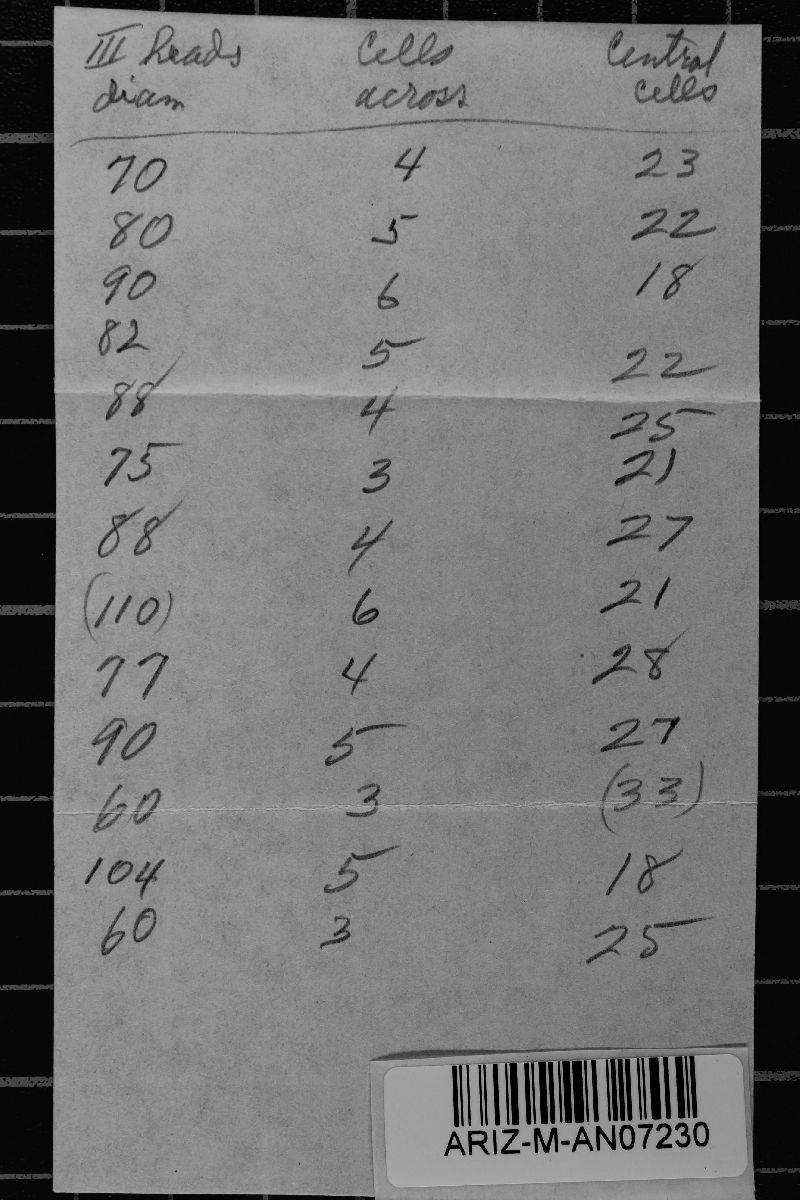 III heads Cells Central
diam across cells
70 4 23
80 5 22
90 6 18
82 5 22
88 4 25
75 3 21
88 4 27
(110) 6 21
77 4 28
90 5 27
60 3 (33)
104 5 18
60 3 25
ARIZ-M-AN07230